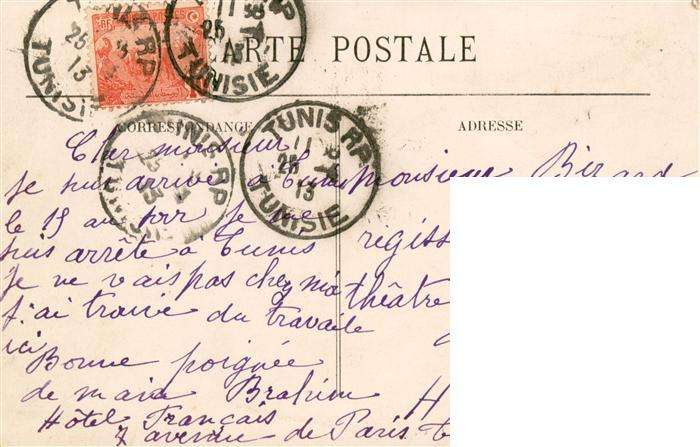 CARTE POSTALE
CORRESPONDANCE
ADRESSE
TUNIS RP
11
25
13
TUNISIE
Cher monsieur
Je suis arrivé à Tunis
le 19 au soir je me
suis arrêté à Tunis
Je ne vais pas chez moi
j'ai trouvé du travaile
ici
Bonne poignée
de main Brahim
Hôtel Français
7 avenue de Paris
monsieur
théâtre
H